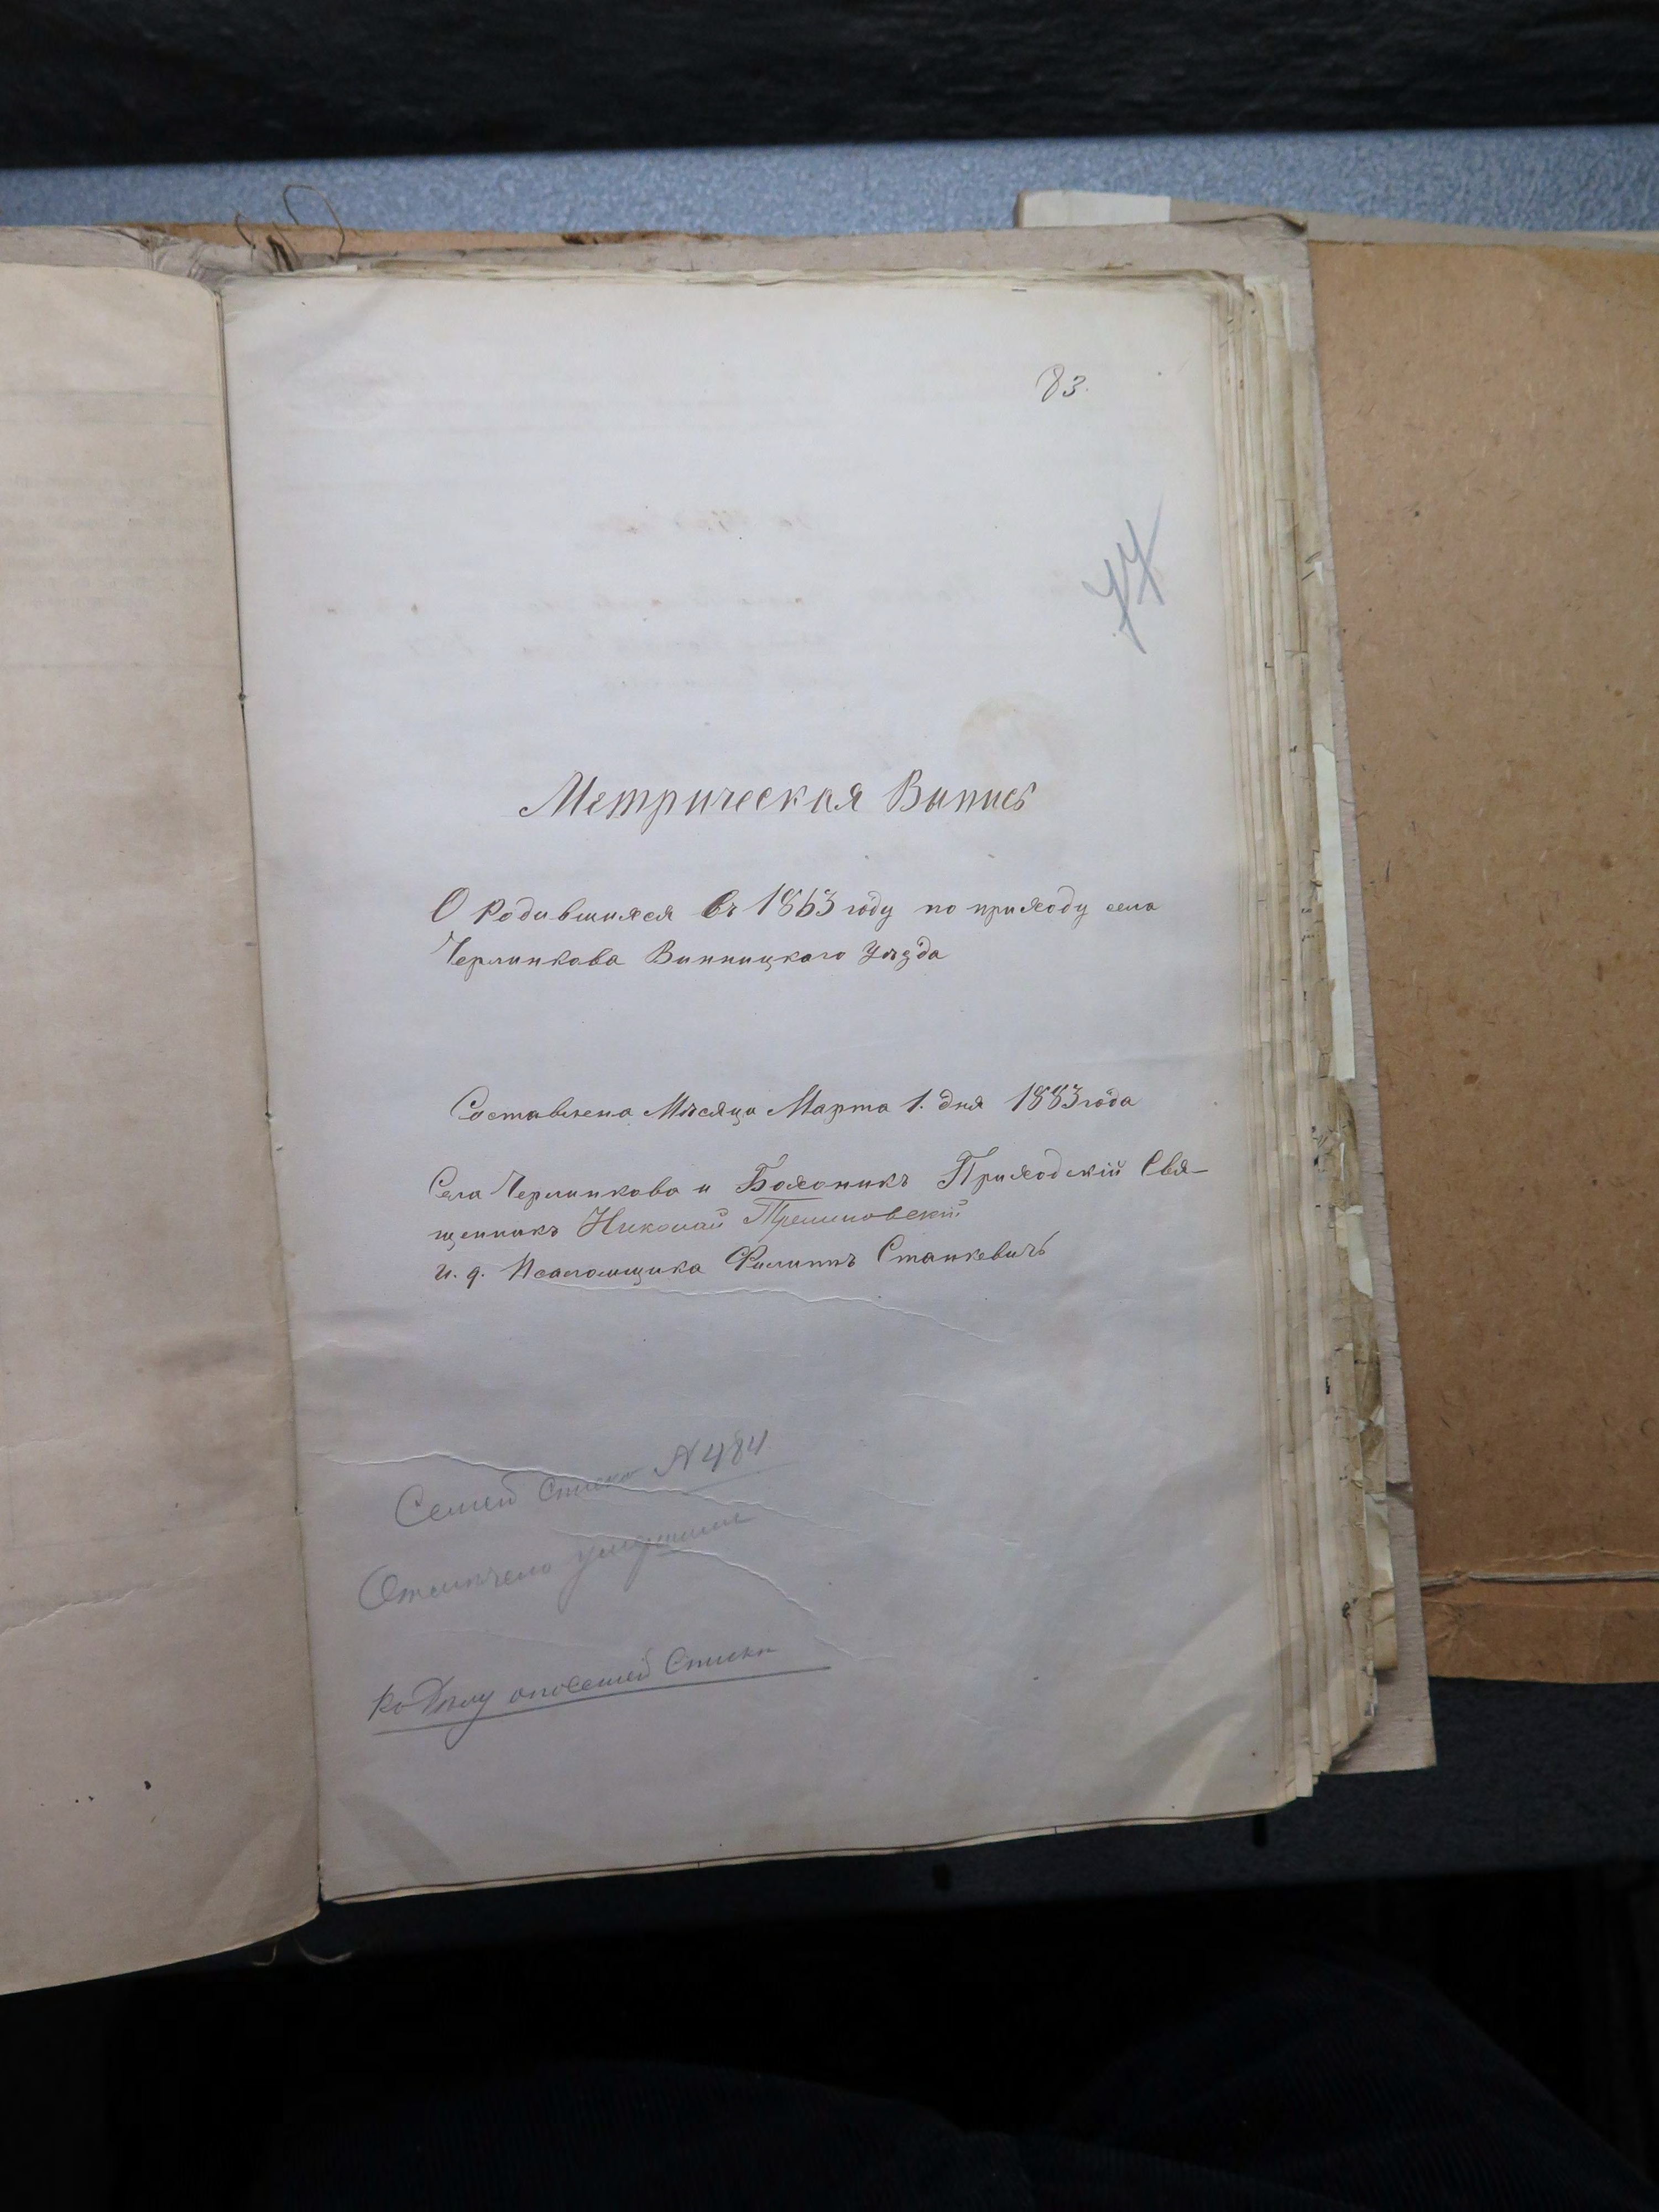 83.
77
Метрическая Выпись
О Родившихся въ 1863 году по приходу села
Черлинкова Винницкаго Уѣзда
Составлена Мѣсяца Марта 1. дня 1883 года
Села Черлинкова и Бохоникъ Приходскій Свя-
щенникъ Николай
и. д. Псаломщика Филиппъ Станкевичъ
Семей Списка №484
Отмѣчено умершими